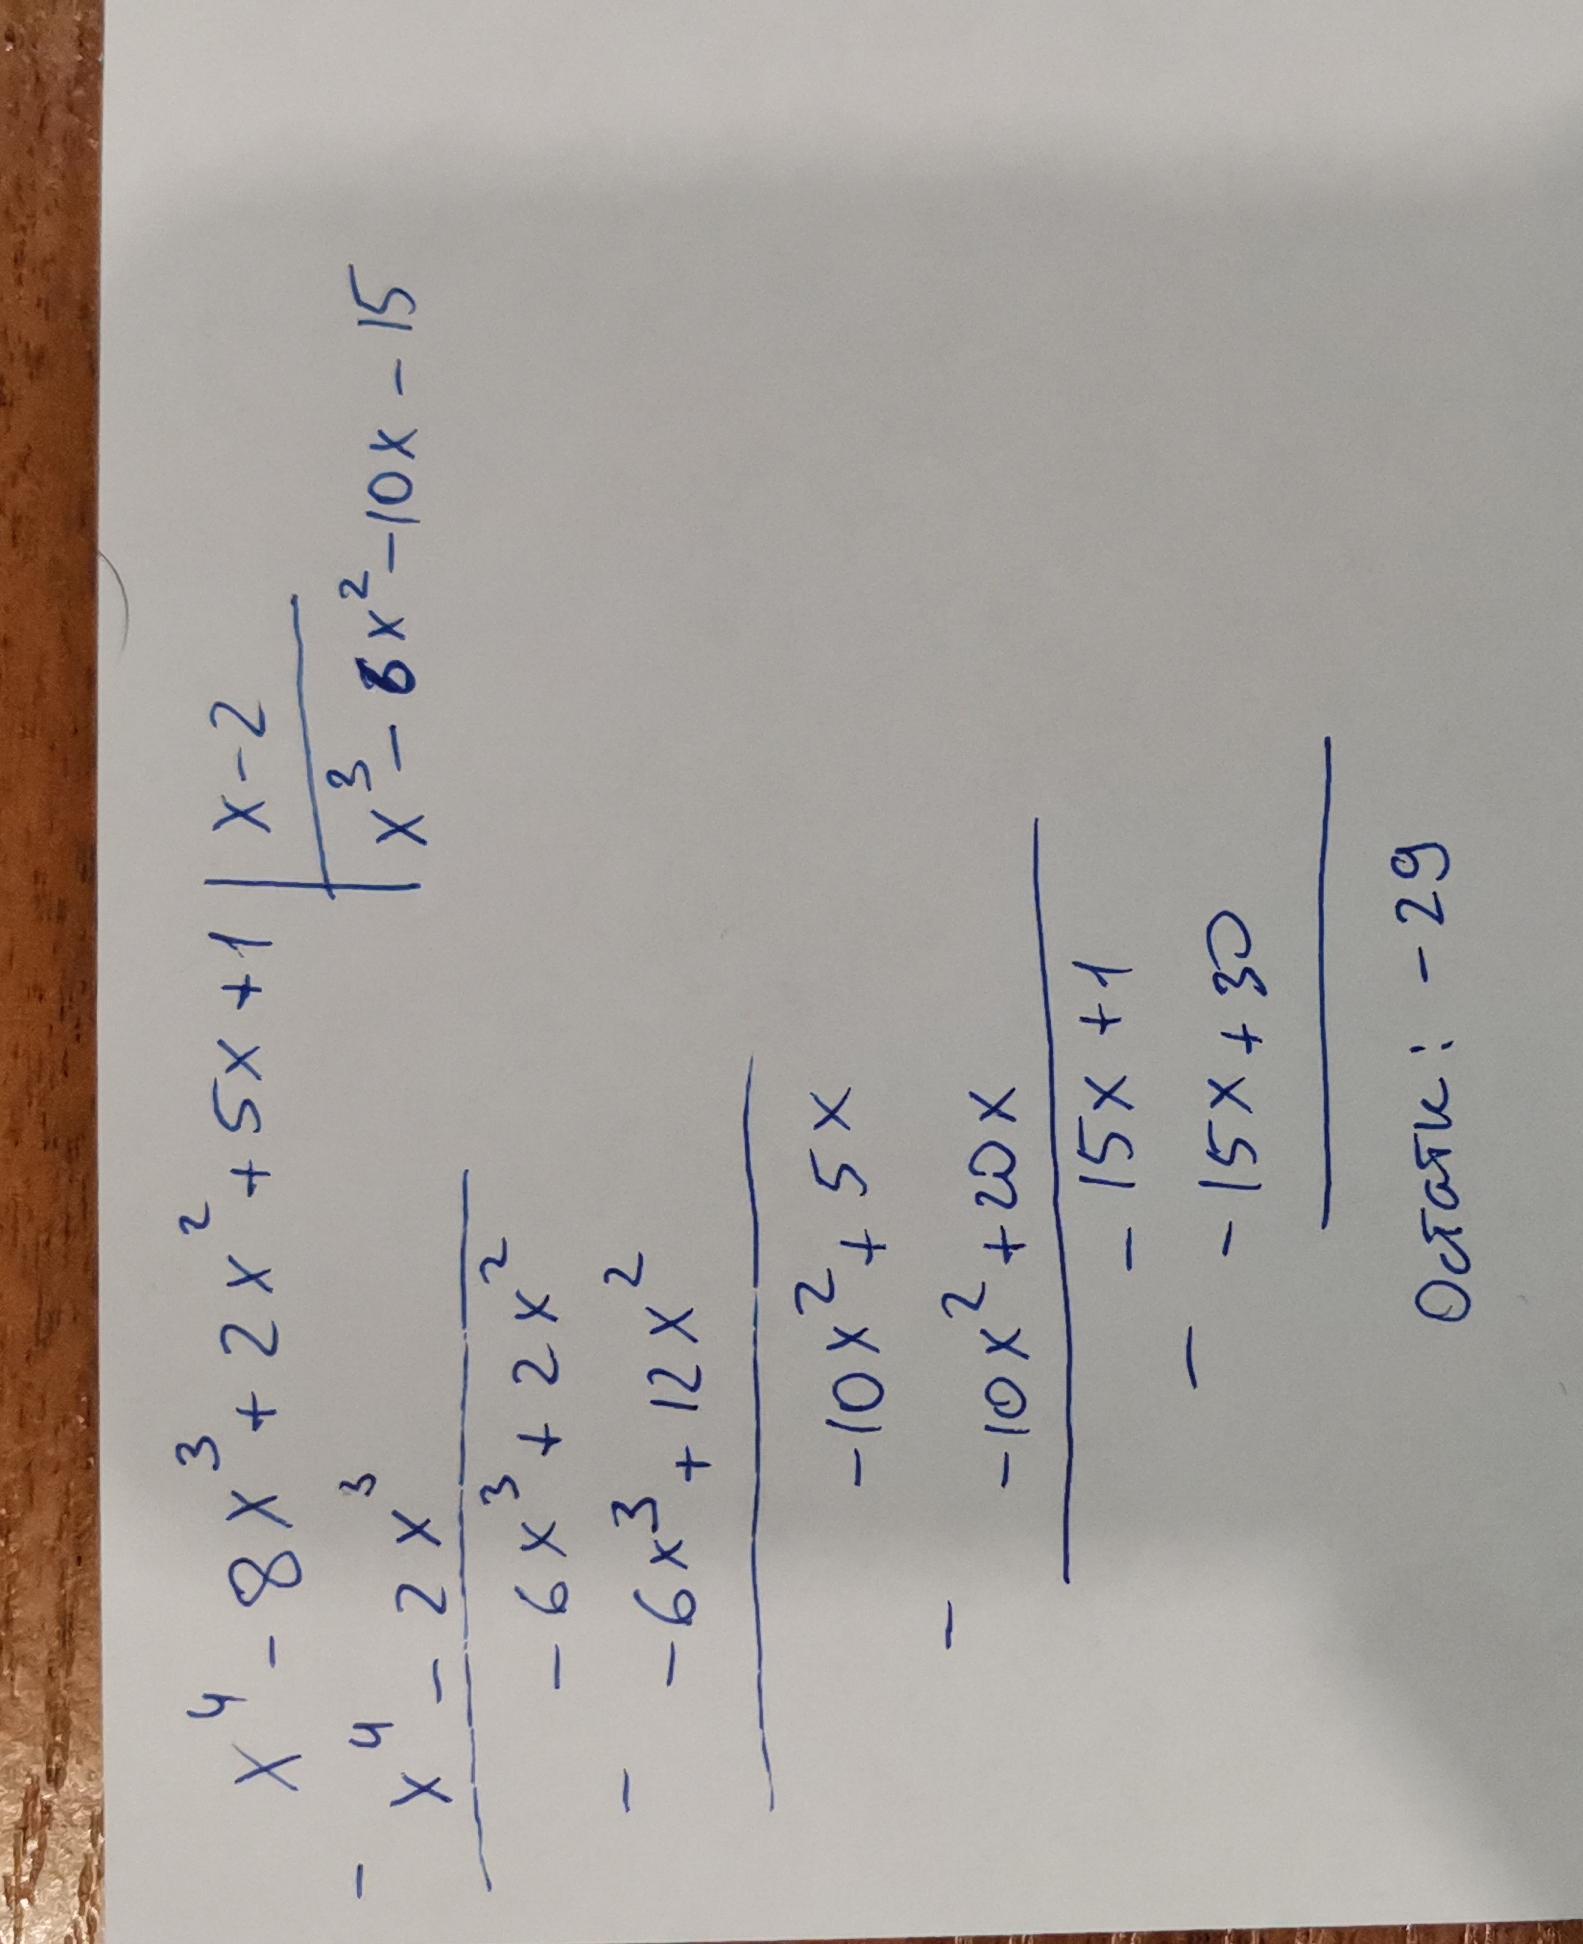 x⁴ - 8x³ + 2x² + 5x + 1 | x - 2
- x⁴ - 2x³ | x³ - 6x² - 10x - 15
- 6x³ + 2x²
- - 6x³ + 12x²
- 10x² + 5x
- - 10x² + 20x
- 15x + 1
- - 15x + 30
Остатк: - 29